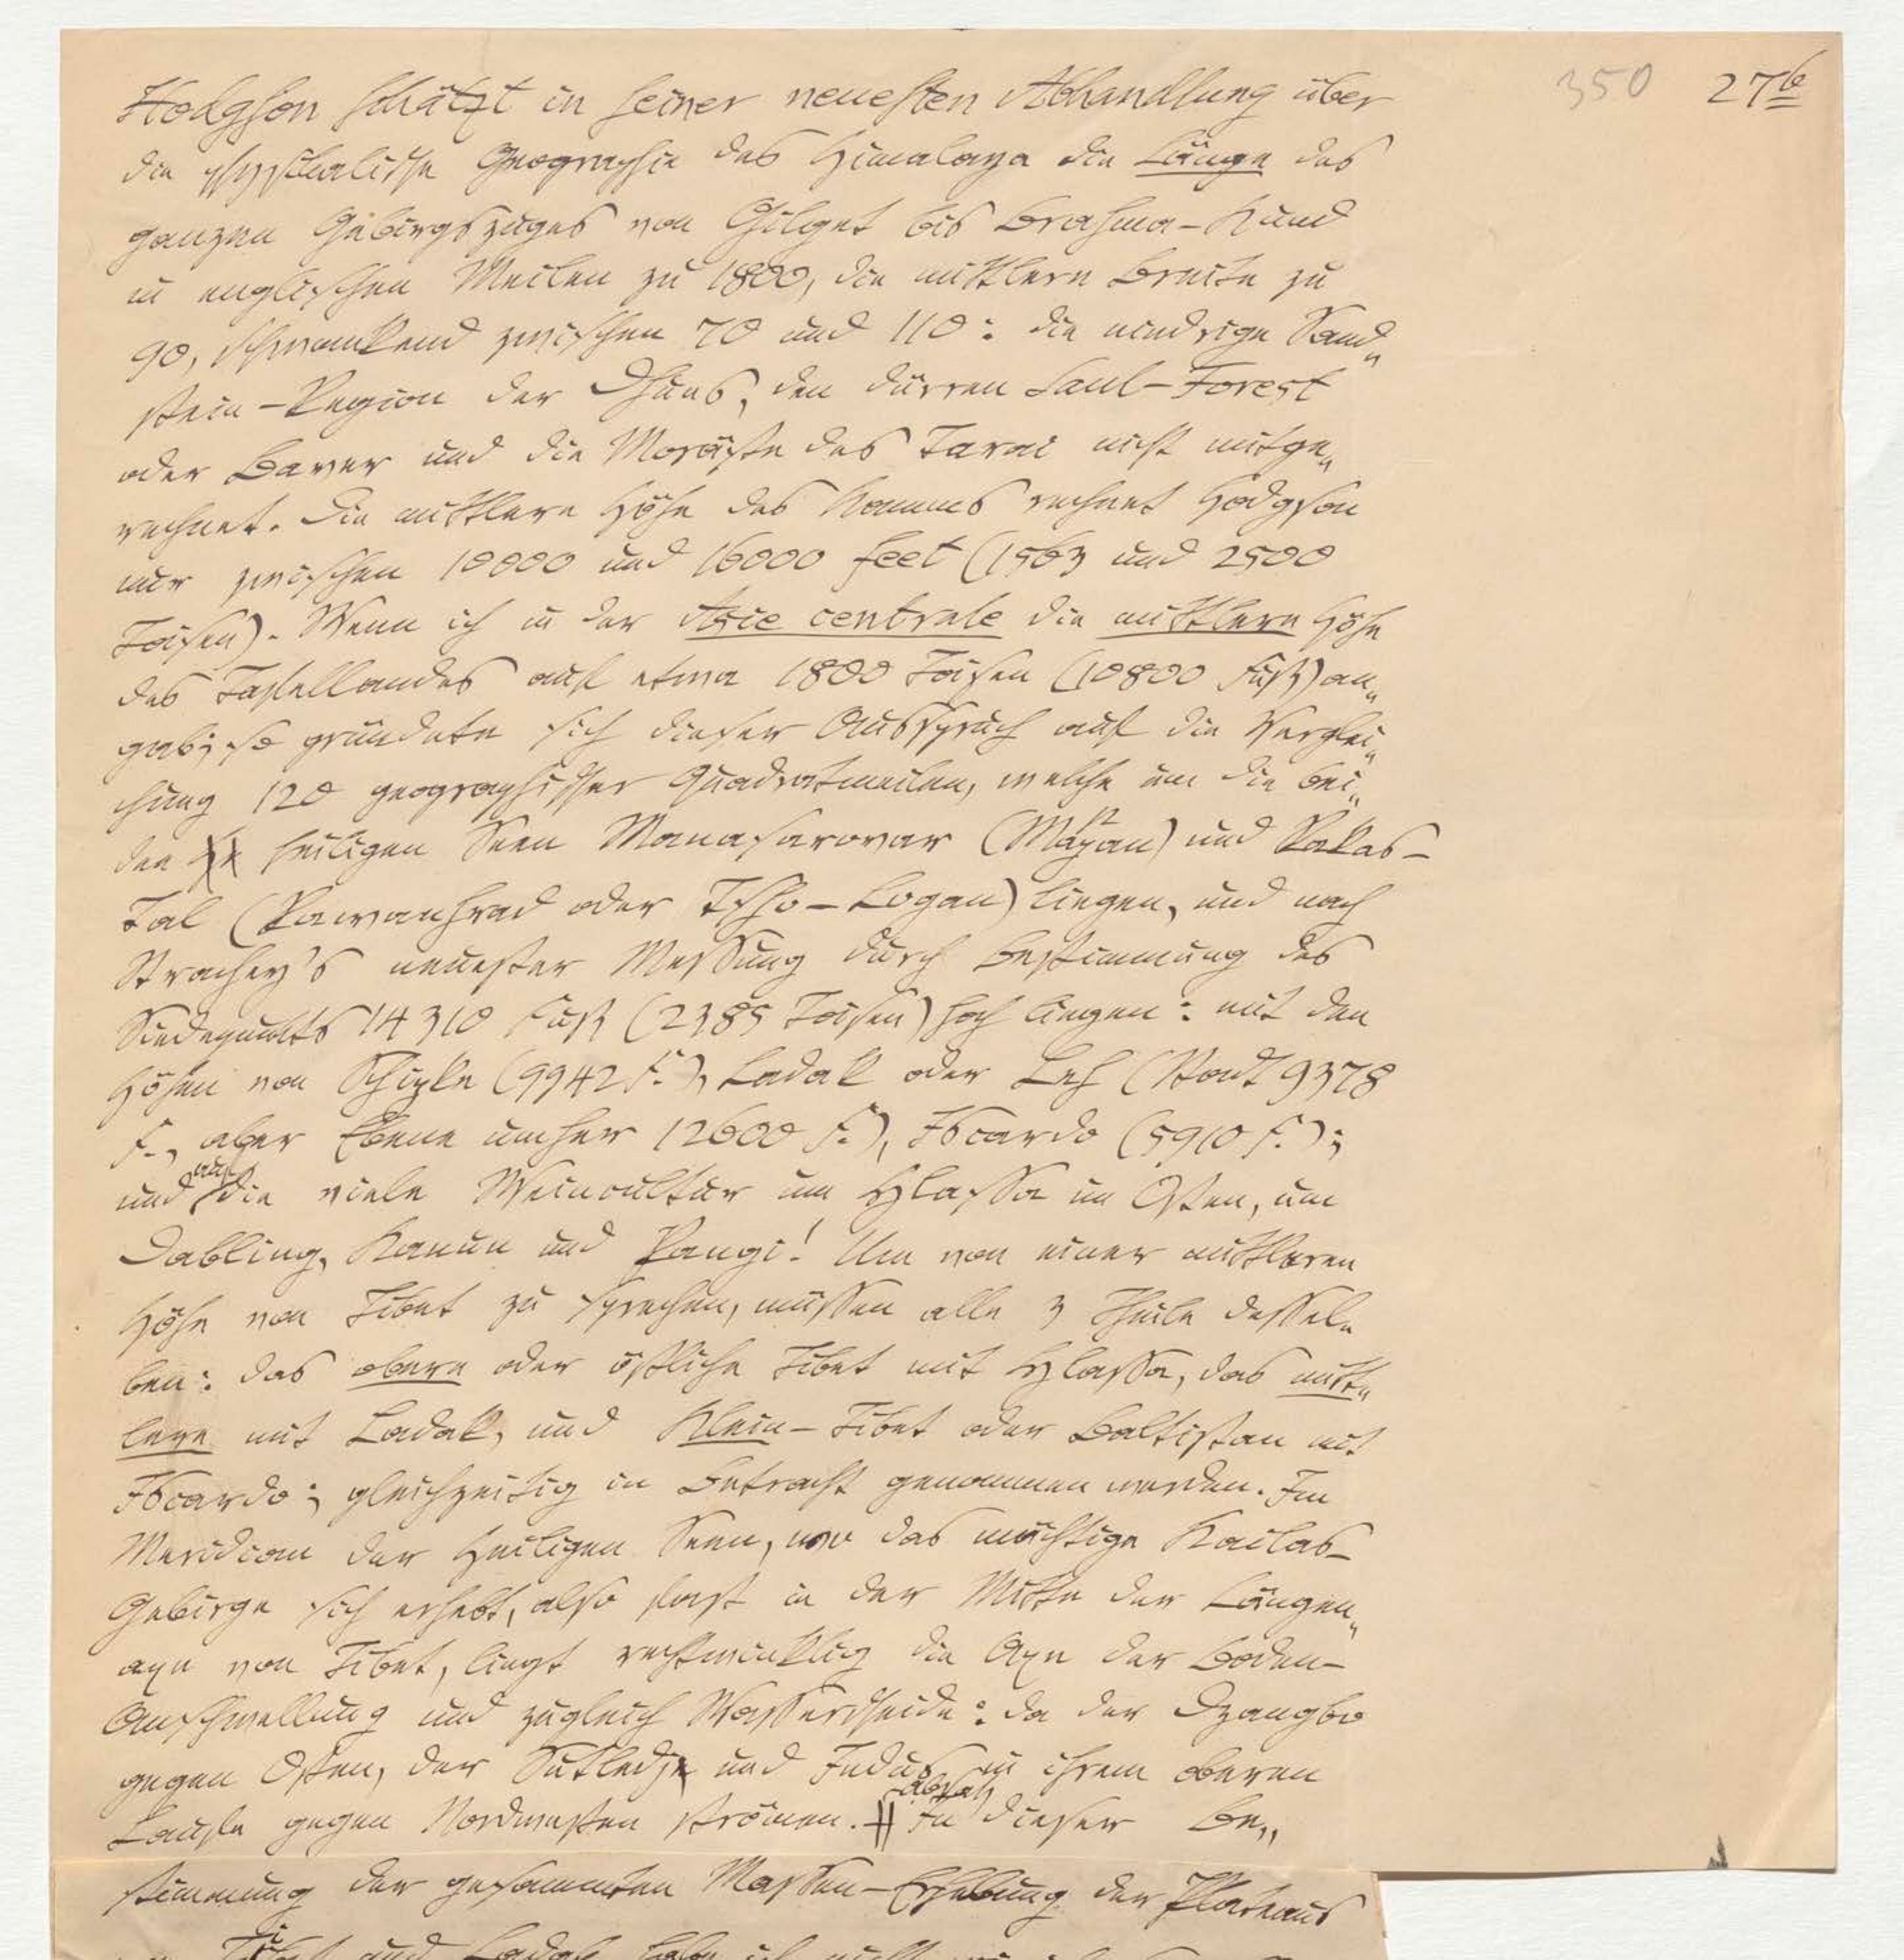 350 27b
Hodgson schätzt in seiner neuesten Abhandlung über
die physikalische Geographie des Himalaya die Länge des
ganzen Gebirgszuges von Gilget bis Brahma-Kund
in englischen Meilen zu 1800, die mittlere Breite zu
90, schwankend zwischen 70 und 110: die niedrige Sand„
stein-Region der Dhuns, den dürren Saul-Forest
oder Baver und die Moräste des Tarai nicht mitge„
rechnet. Die mittlere Höhe des Kamms rechnet Hodgson
nur zwischen 10000 und 16000 feet (1563 und 2500
Toisen). Wenn ich in der Asie centrale die mittlere Höhe
des Tafellandes auf etwa 1800 Toisen (10800 Fuß) an„
gab; so gründete sich dieser Ausspruch auf die Verglei„
chung 120 geographischer Quadratmeilen, welche um die bei„
den heiligen Seen Manasarovar (Mapan) und Rakas-
Tal (Rawanhrad oder Tso-Logan) liegen, und nach
Strachey's neuester Messung durch Bestimmung des
Siedepunkts 14310 Fuß (2385 Toisen) hoch liegen: mit den
Höhen von Schipke (9942 F.), Ladak oder Leh (Stadt 9378
F., aber Ebene umher 12600 F.), Iscardo (5910 F.);
und auf die viele Weincultur um Hlassa im Osten, um
Dabling, Kanun und Rangi! Um von einer mittleren
Höhe von Tibet zu sprechen, müssen alle 3 Theile dessel„
ben: das obere oder östliche Tibet mit Hlassa, das mitt„
lere mit Ladak, und Klein-Tibet oder Baltistan mit
Iscardo; gleichzeitig in Betracht genommen werden. Im
Meridian der Heiligen Seen, wo das mächtige Kailas-
Gebirge sich erhebt, also fast in der Mitte der Längen„
axe von Tibet, liegt rechtwinklig die Axe der Boden-
Anschwellung und zugleich Wasserscheide: da der Dzangbo
gegen Osten, der Sutledj und Indus in ihrem oberen
Laufe gegen Nordwesten strömen. || Absatz In dieser Be„
stimmung der gesammten Massen-Erhebung der Plateaus
Tibet und Ladak habe ich nicht